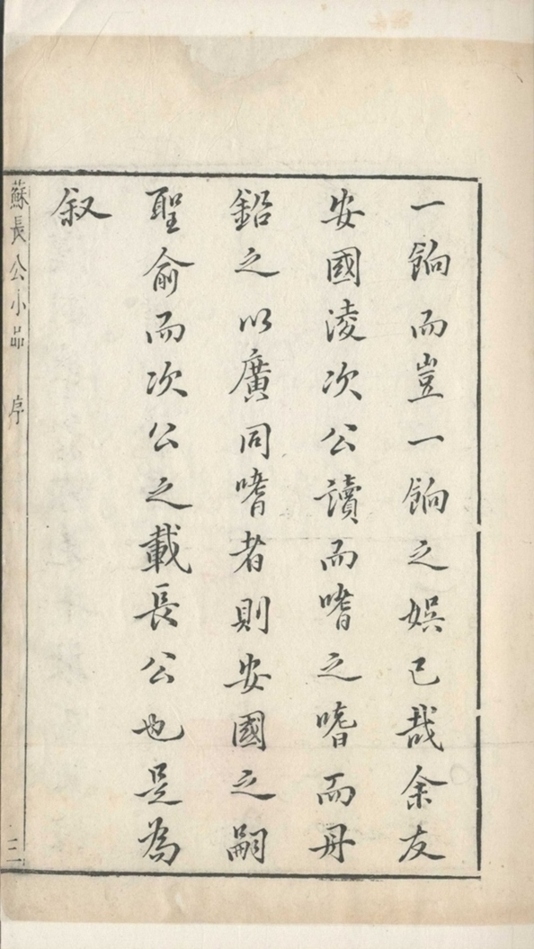 一餉而豈一餉之娛已哉余友
安國凌次公讀而嗜之嗜而丹
鉛之以廣同嗜者則安國之嗣
聖俞而次公之載長公也是為
叙
蘇長公小品 序 三